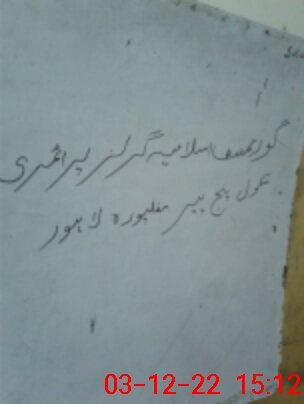 گورنمنٹ اسلامیہ گرلز پرائمری
سکول پنج پیر مغلپورہ لاہور
03-12-22 15:12